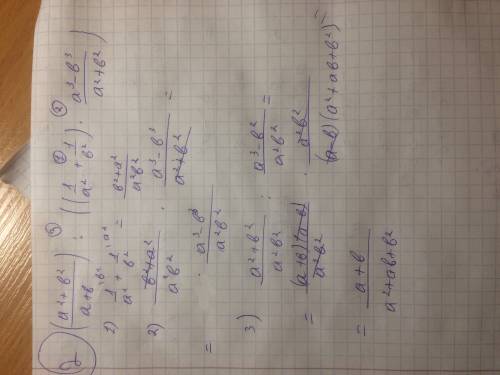 2) (a²+b²)/(a+b) : ((1/a² + 1/b²) · (a³-b³)/(a²+b²))
1) 1/a² + 1/b² = (b²+a²)/(a²b²)
2) (b²+a²)/(a²b²) · (a³-b³)/(a²+b²) =
= (a³-b³)/(a²b²)
3) (a²+b²)/(a²b²) : (a³-b²)/(a²b²) =
= (a+b)(a-b)/(a²b²) · a²b²/((a-b)(a²+ab+b²)) =
= (a+b)/(a²+ab+b²)